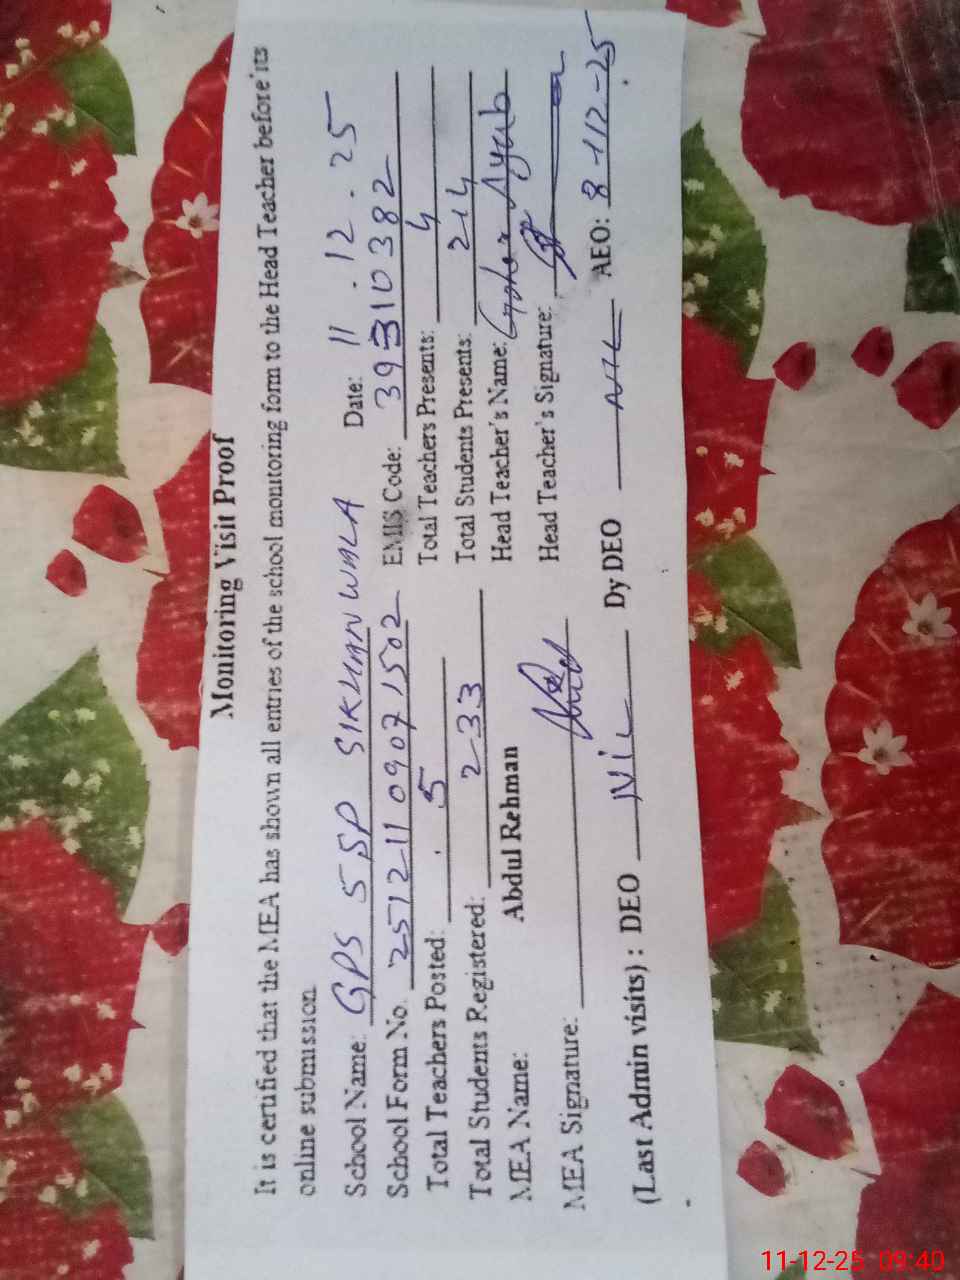 Monitoring Visit Proof
It is certified that the MEA has shown all entries of the school monitoring form to the Head Teacher before its
online submission
School Name: GPS 5 SP SIKHANWALA Date: 11.12.25
School Form No. 25121109071502 EMIS Code: 39310382
Total Teachers Posted: 5 Total Teachers Presents: 4
Total Students Registered: 233 Total Students Presents: 214
MEA Name: Abdul Rehman Head Teacher's Name: Ayub
MEA Signature: Head Teacher's Signature:
(Last Admin visits) : DEO NiL Dy DEO NIL AEO: 8-12-25
11-12-25 09:40